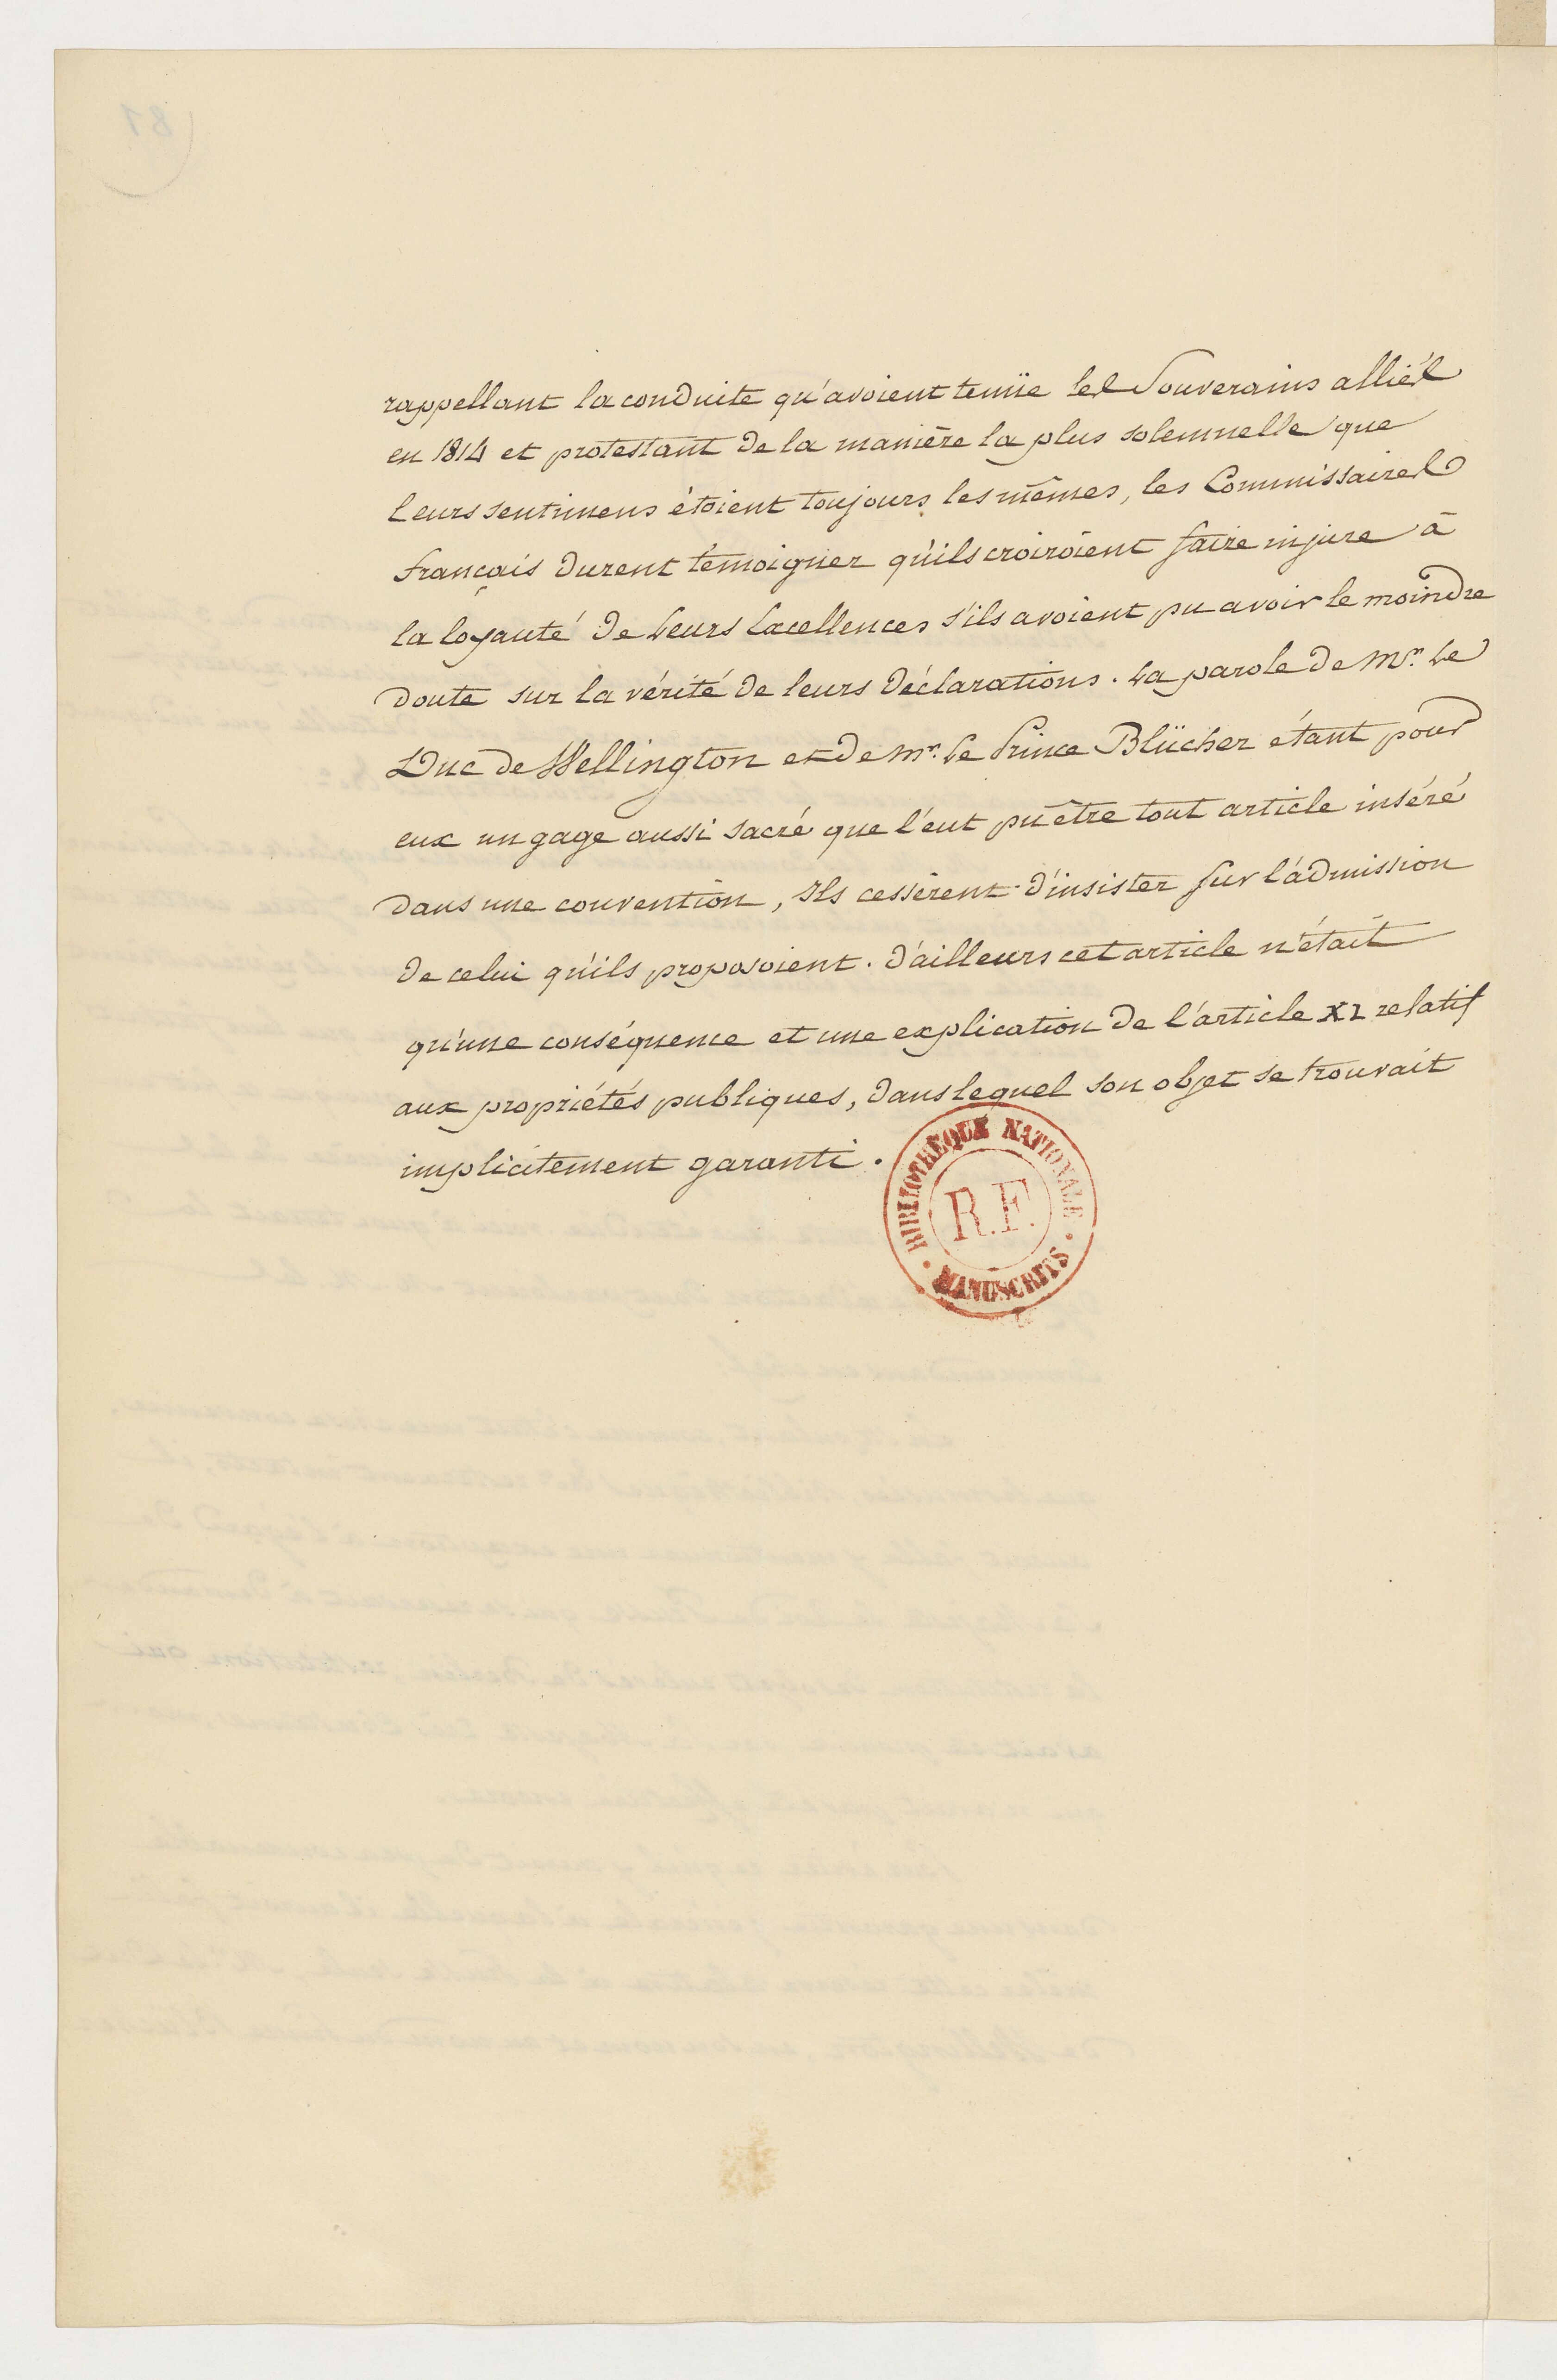 rappellant la conduite qu'avoient tenüe les Souverains alliés
en 1814 et protestant de la manière la plus solemnelle que
leurs sentimens étoient toujours les mêmes, les Commissaires
français durent témoigner qu'ils croiroient faire injure à
la loyauté de Leurs Excellences s'ils avoient pu avoir le moindre
doute sur la vérité de leurs déclarations. La parole de Mr. Le
Duc de Wellington et de Mr. Le Prince Blücher étant pour
eux un gage aussi sacré que l'eut pu être tout article inséré
dans une convention, Ils cessèrent d'insister sur l'admission
de celui qu'ils proposoient. d'ailleurs cet article n'était
qu'une conséquence et une explication de l'article XI relatif
aux propriétés publiques, dans lequel son objet se trouvait
implicitement garanti.
BIBLIOTHÈQUE NATIONALE
R.F.
MANUSCRITS